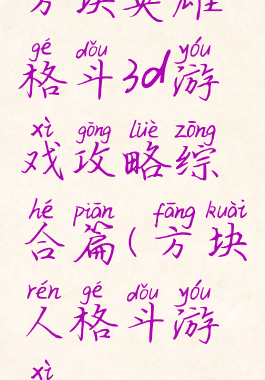 方块英雄
gé dǒu yóu
格斗3d游
xì gōng lüè zōng
戏攻略综
hé piān fāng kuài
合篇(方块
rén gé dǒu yóu
人格斗游
xì